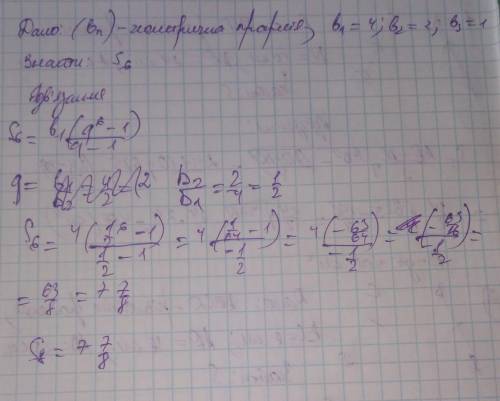 Дано: (bn) - геометрична прогресія, b1 = 4; b2 = 2; b3 = 1
Знайти: S6
Розв'язання
S6 = b1(q^6 - 1) / (q - 1)
q = b2/b1 = 2/4 = 1/2
S6 = 4(1/2^6 - 1) / (1/2 - 1) = 4(1/64 - 1) / (-1/2) = 4(-63/64) / (-1/2) = (-63/16) / (-1/2) =
= 63/8 = 7 7/8
S6 = 7 7/8